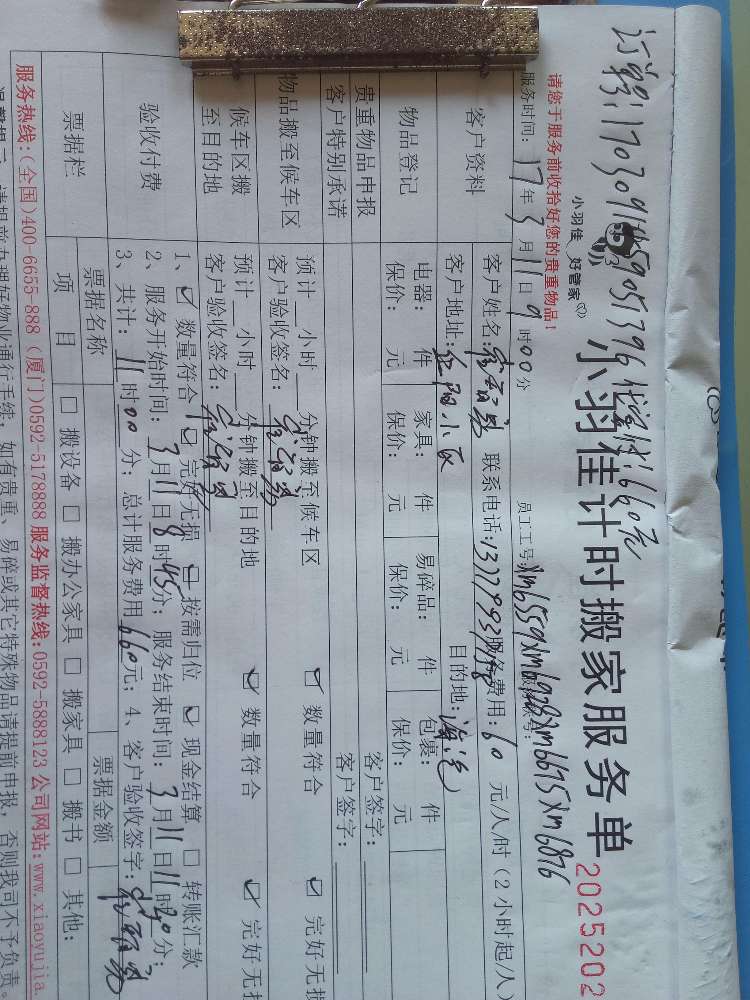 订单号:17030911459051396 优惠价:660元
小羽佳 好管家
小羽佳计时搬家服务单
2025202
请您于服务前收拾好您的贵重物品!
员工工号:xm6559xm6928xm6675xm6876
服务时间: 17年3月11日9时00分
客户资料
客户姓名: 联系电话: 服务费用:60元/人/时(2小时起/人)
客户地址: 红阳小区 目的地:海沧
物品登记
电器: 件 家具: 件 易碎品: 件 包裹: 件
保价: 元 保价: 元 保价: 元 保价: 元
贵重物品申报 客户签字:
客户特别承诺 客户签字:
物品搬至候车区
预计 小时 分钟搬至候车区 ☑ 数量符合 ☑ 完好无损
客户验收签名:
候车区搬
至目的地
预计 小时 分钟搬至目的地 ☑ 数量符合 ☑ 完好无损
客户验收签名:
验收付费
1、☑ 数量符合 ☑ 完好无损 ☑ 按需归位 ☑ 现金结算 □ 转账汇款
2、服务开始时间: 3月11日8时45分; 服务结束时间: 3月11日11时20分;
3、共计: 11时00分; 总计服务费用660元; 4、客户验收签字:
票据栏
票据名称 票据金额
项 目 □ 搬设备 □ 搬办公家具 □ 搬家具 □ 搬书 □ 其他:
服务热线:(全国)400-6655-888 (厦门)0592-5178888 服务监督热线:0592-5888123 公司网站:www.xiaoyujia.
温馨提示:请提前办理好物业通行手续,如有贵重、易碎或其它特殊物品请提前申报,否则我司不予负责。